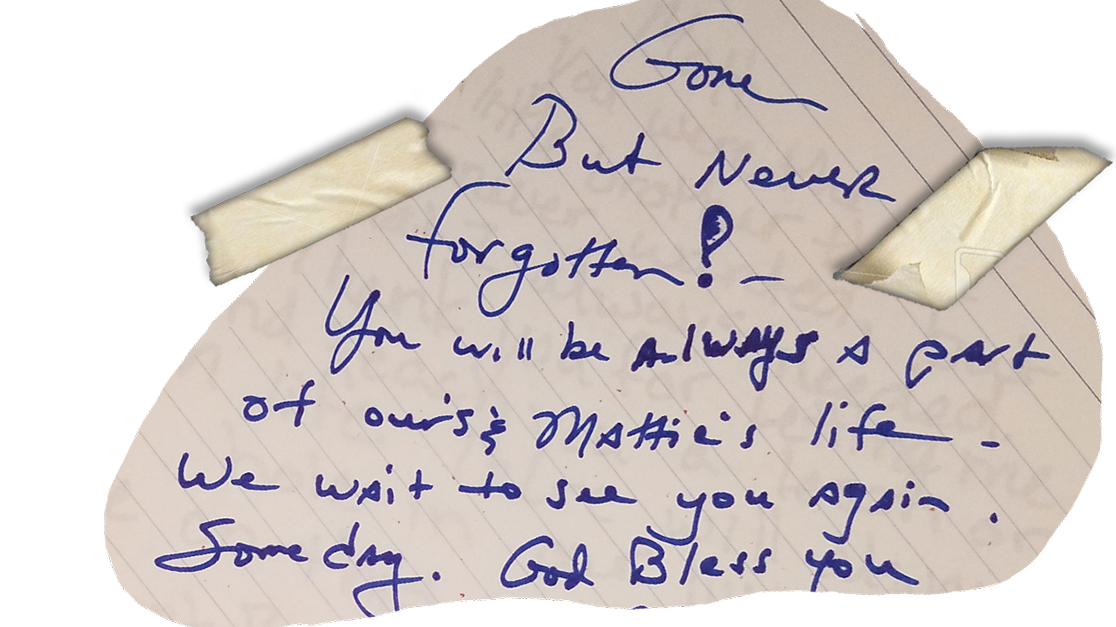 Gone
But Never
forgotten! -
You will be Always a part
of our's & Mattie's life -
We wait to see you again.
Some day. God Bless you